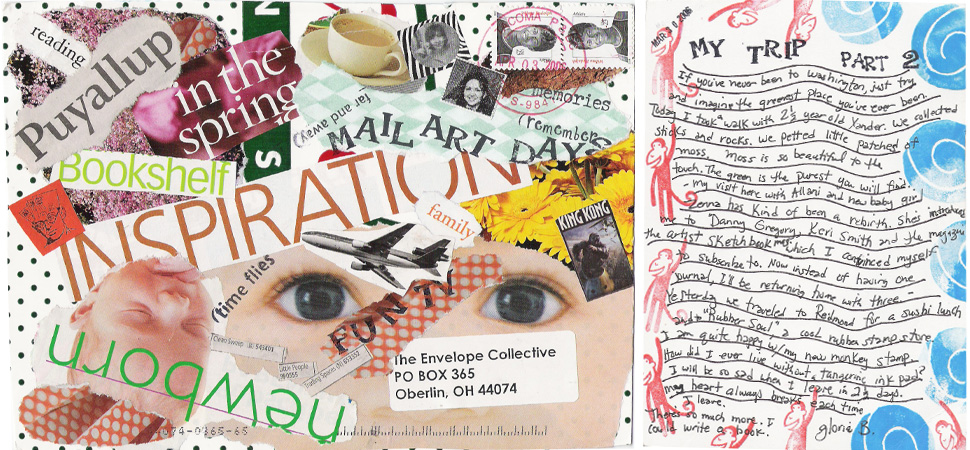 reading
Puyallup
in the
spring
Bookshelf
far and
away)
MAIL ART DAYS
memories
(remember
INSPIRATION
family
KING KONG
(time flies
FUN TV
newborn
The Envelope Collective
PO BOX 365
Oberlin, OH 44074
MAR 3 0 2006
MY TRIP PART 2
If you've never been to Washington, just try
and imagine the greenest place you've ever been.
Today I took a walk with 2½ year old Xander. We collected
sticks and rocks. We petted little patches of
moss. Moss is so beautiful to the
touch. The green is the purest you will find.
- My visit here with Allani and new baby girl
Jenna has kind of been a rebirth. She's introduced
me to Danny Gregory, Keri Smith and the magazine
the artist sketchbook which I convinced myself
to subscribe to. Now instead of having one
journal, I'll be returning home with three. -
Yesterday we traveled to Redmond for a sushi lunch
and to "Rubber Soul" a cool rubber stamp store.
I am quite happy w/ my new monkey stamp.
How did I ever live without a tangerine ink pad?
I will be so sad when I leave in 2½ days.
My heart always breaks each time
I leave.
There's so much more. I
could write a book. glorie B.